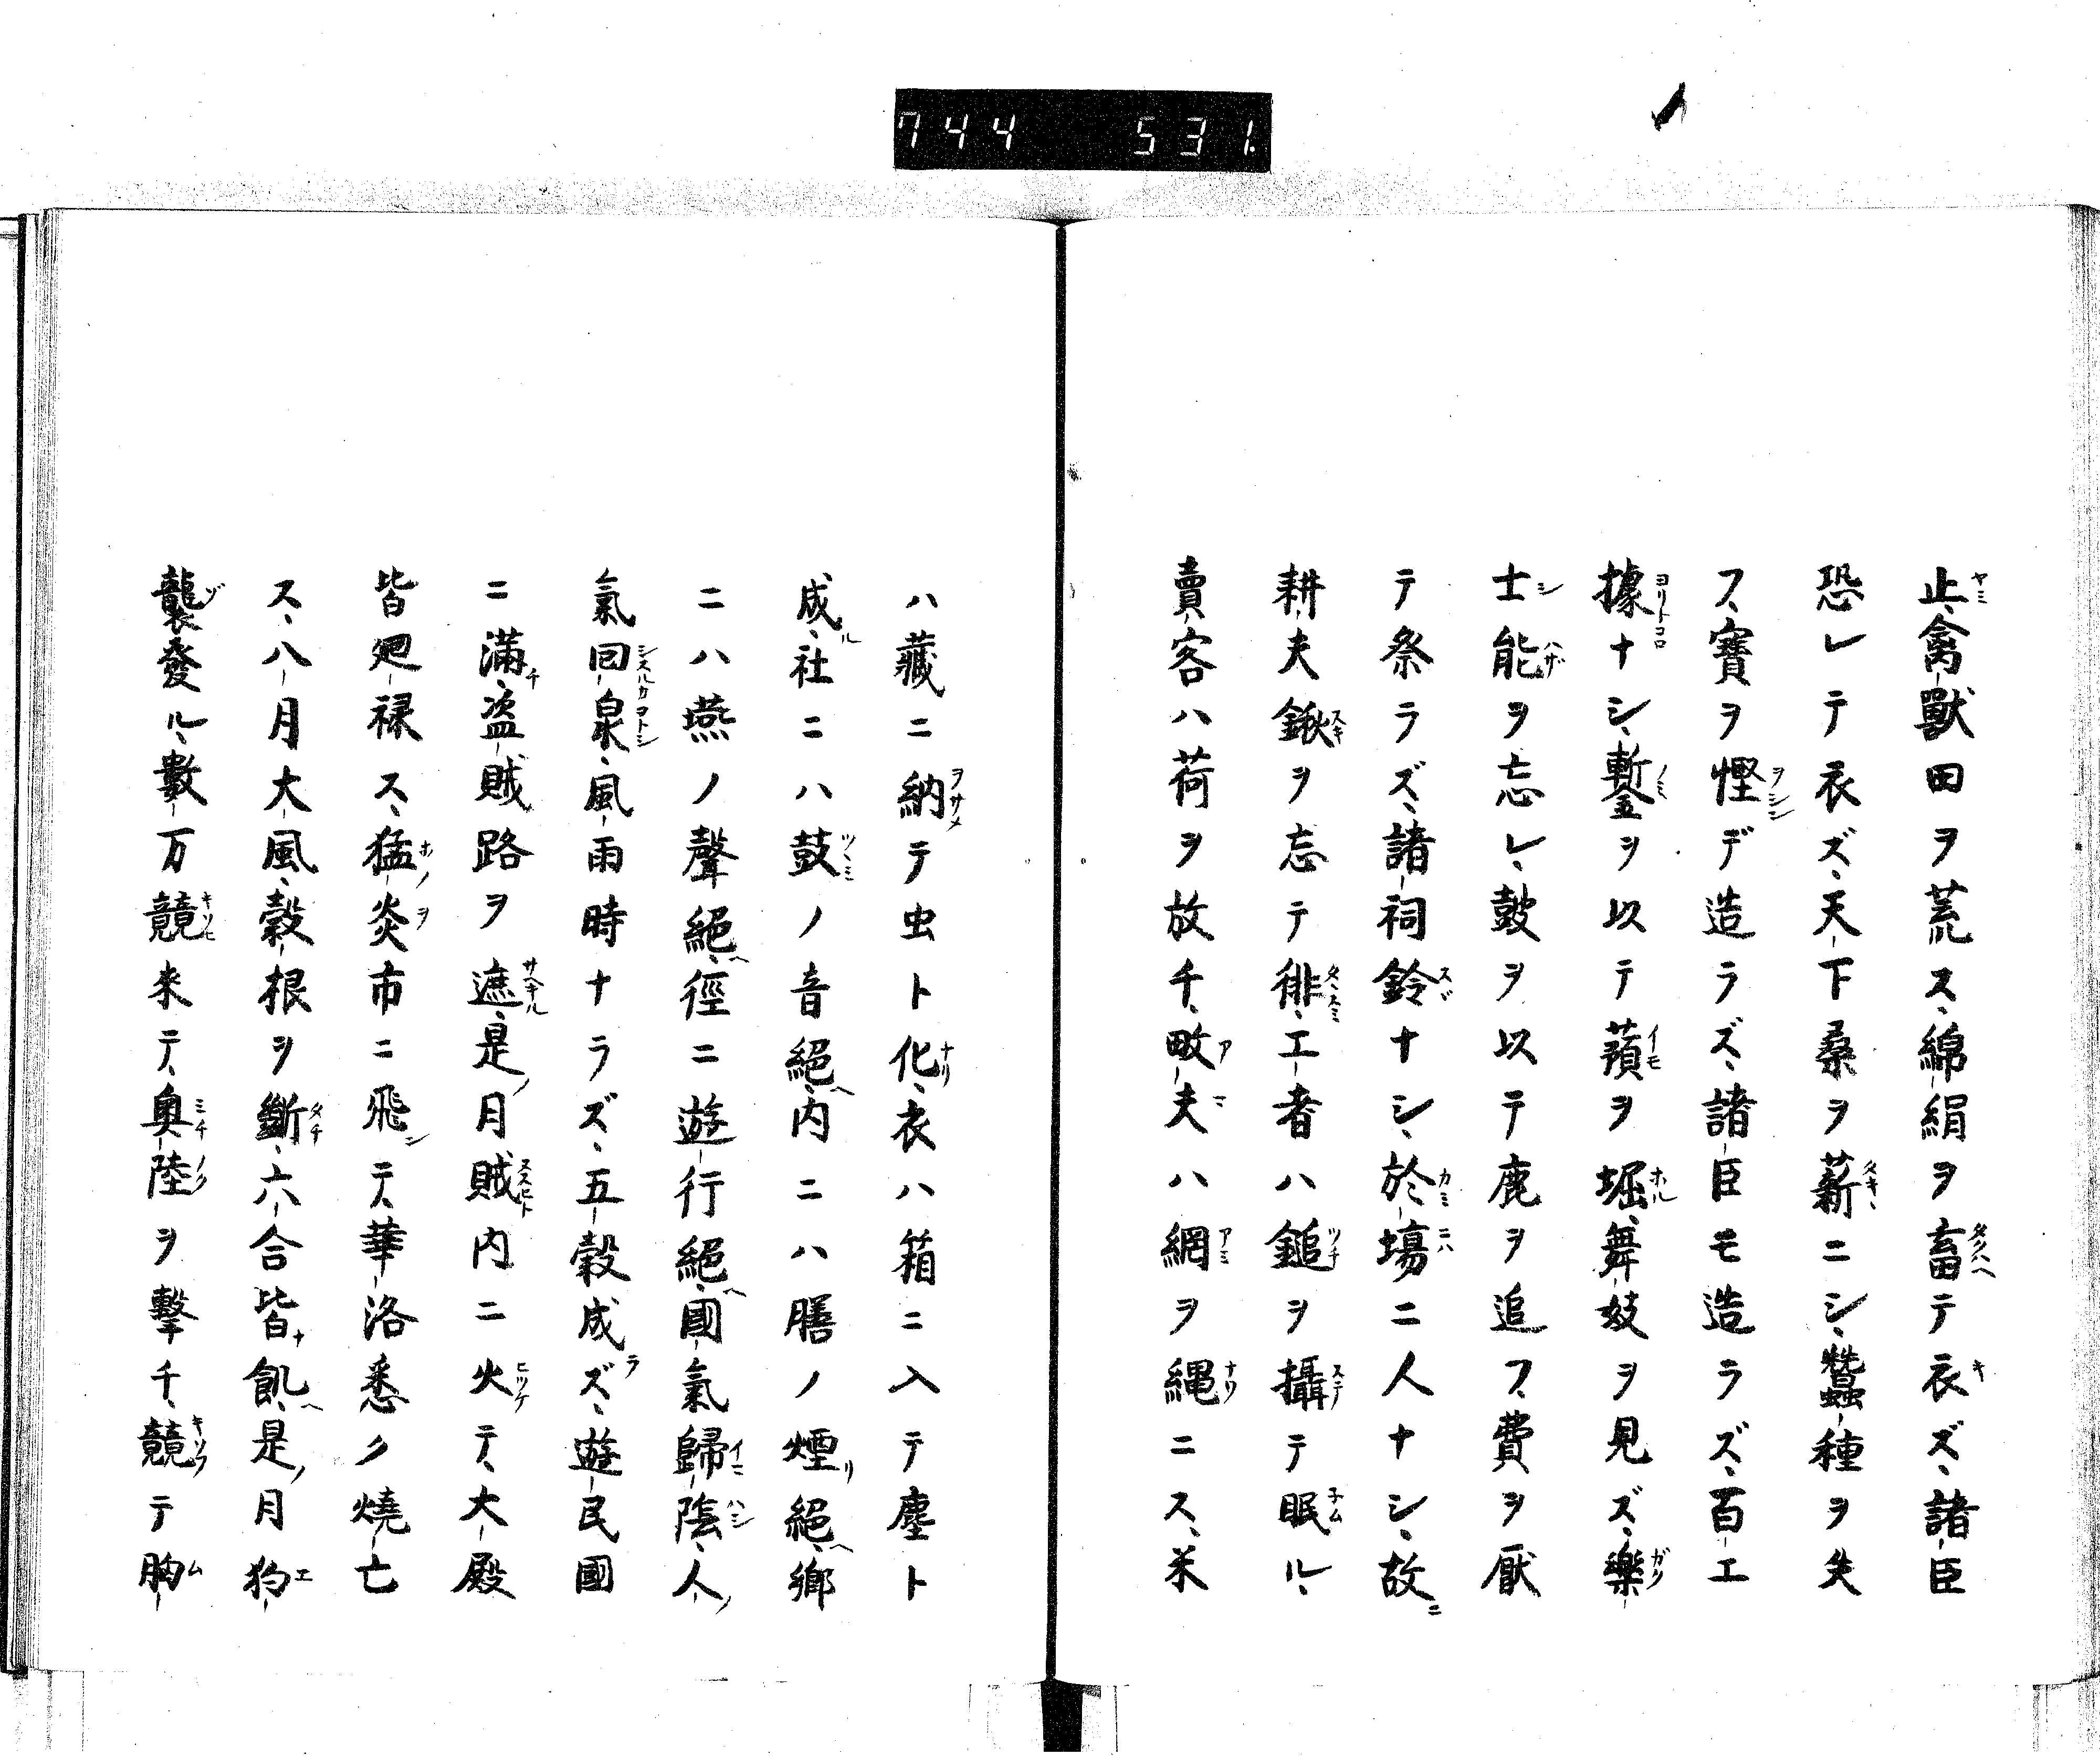 744 531.
止、禽獸田ヲ荒ス、綿絹ヲ畜テ衣ズ、諸臣
恐レテ衣ズ、天下桑ヲ薪ニシ、蠶種ヲ失
フ、寶ヲ慳デ造ラズ、諸臣モ造ラズ、百工
據ナシ、鏨ヲ以テ蘋ヲ堀、舞妓ヲ見ズ、樂
士能ヲ忘レ、鼓ヲ以テ鹿ヲ追フ、費ヲ厭
テ祭ラズ、諸祠鈴ナシ、於場ニ人ナシ、故ニ
耕夫鍬ヲ忘テ徘、工者ハ鎚ヲ攝テ眠ル、
賣客ハ荷ヲ放チ、畋夫ハ網ヲ縄ニス、米
ハ藏ニ納テ虫ト化、衣ハ箱ニ入テ塵ト
成、社ニハ鼓ノ音絕、内ニハ膳ノ煙絕、鄉
ニハ燕ノ聲絕、徑ニ遊行絕、國氣歸陰、人
氣回泉、風雨時ナラズ、五穀成ズ、遊民國
ニ滿、盗賊路ヲ遮、是月賊内ニ火テ、大殿
皆廻祿ス、猛炎市ニ飛テ、華洛悉ク燒亡
ス、八月大風、穀根ヲ斷、六合皆飢、是月狗
襲發ル、數万競来テ、奥陸ヲ擊チ、競テ胸